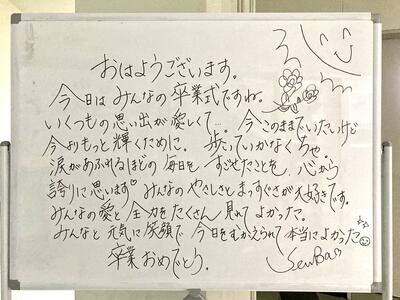 おはようございます。
今日はみんなの卒業式ですね。
いくつもの思い出が愛しくて…。今このままでいたいけど
今よりもっと輝くために。歩っていかなくちゃ
涙があふれるほどの毎日をすごせたことを、心から
誇りに思います♡ みんなのやさしさとまっすぐさが大好きです。
みんなの愛と全力をたくさん見れてよかった。
みんなと元気に笑顔で今日をむかえられて本当によかった
卒業おめでとう。